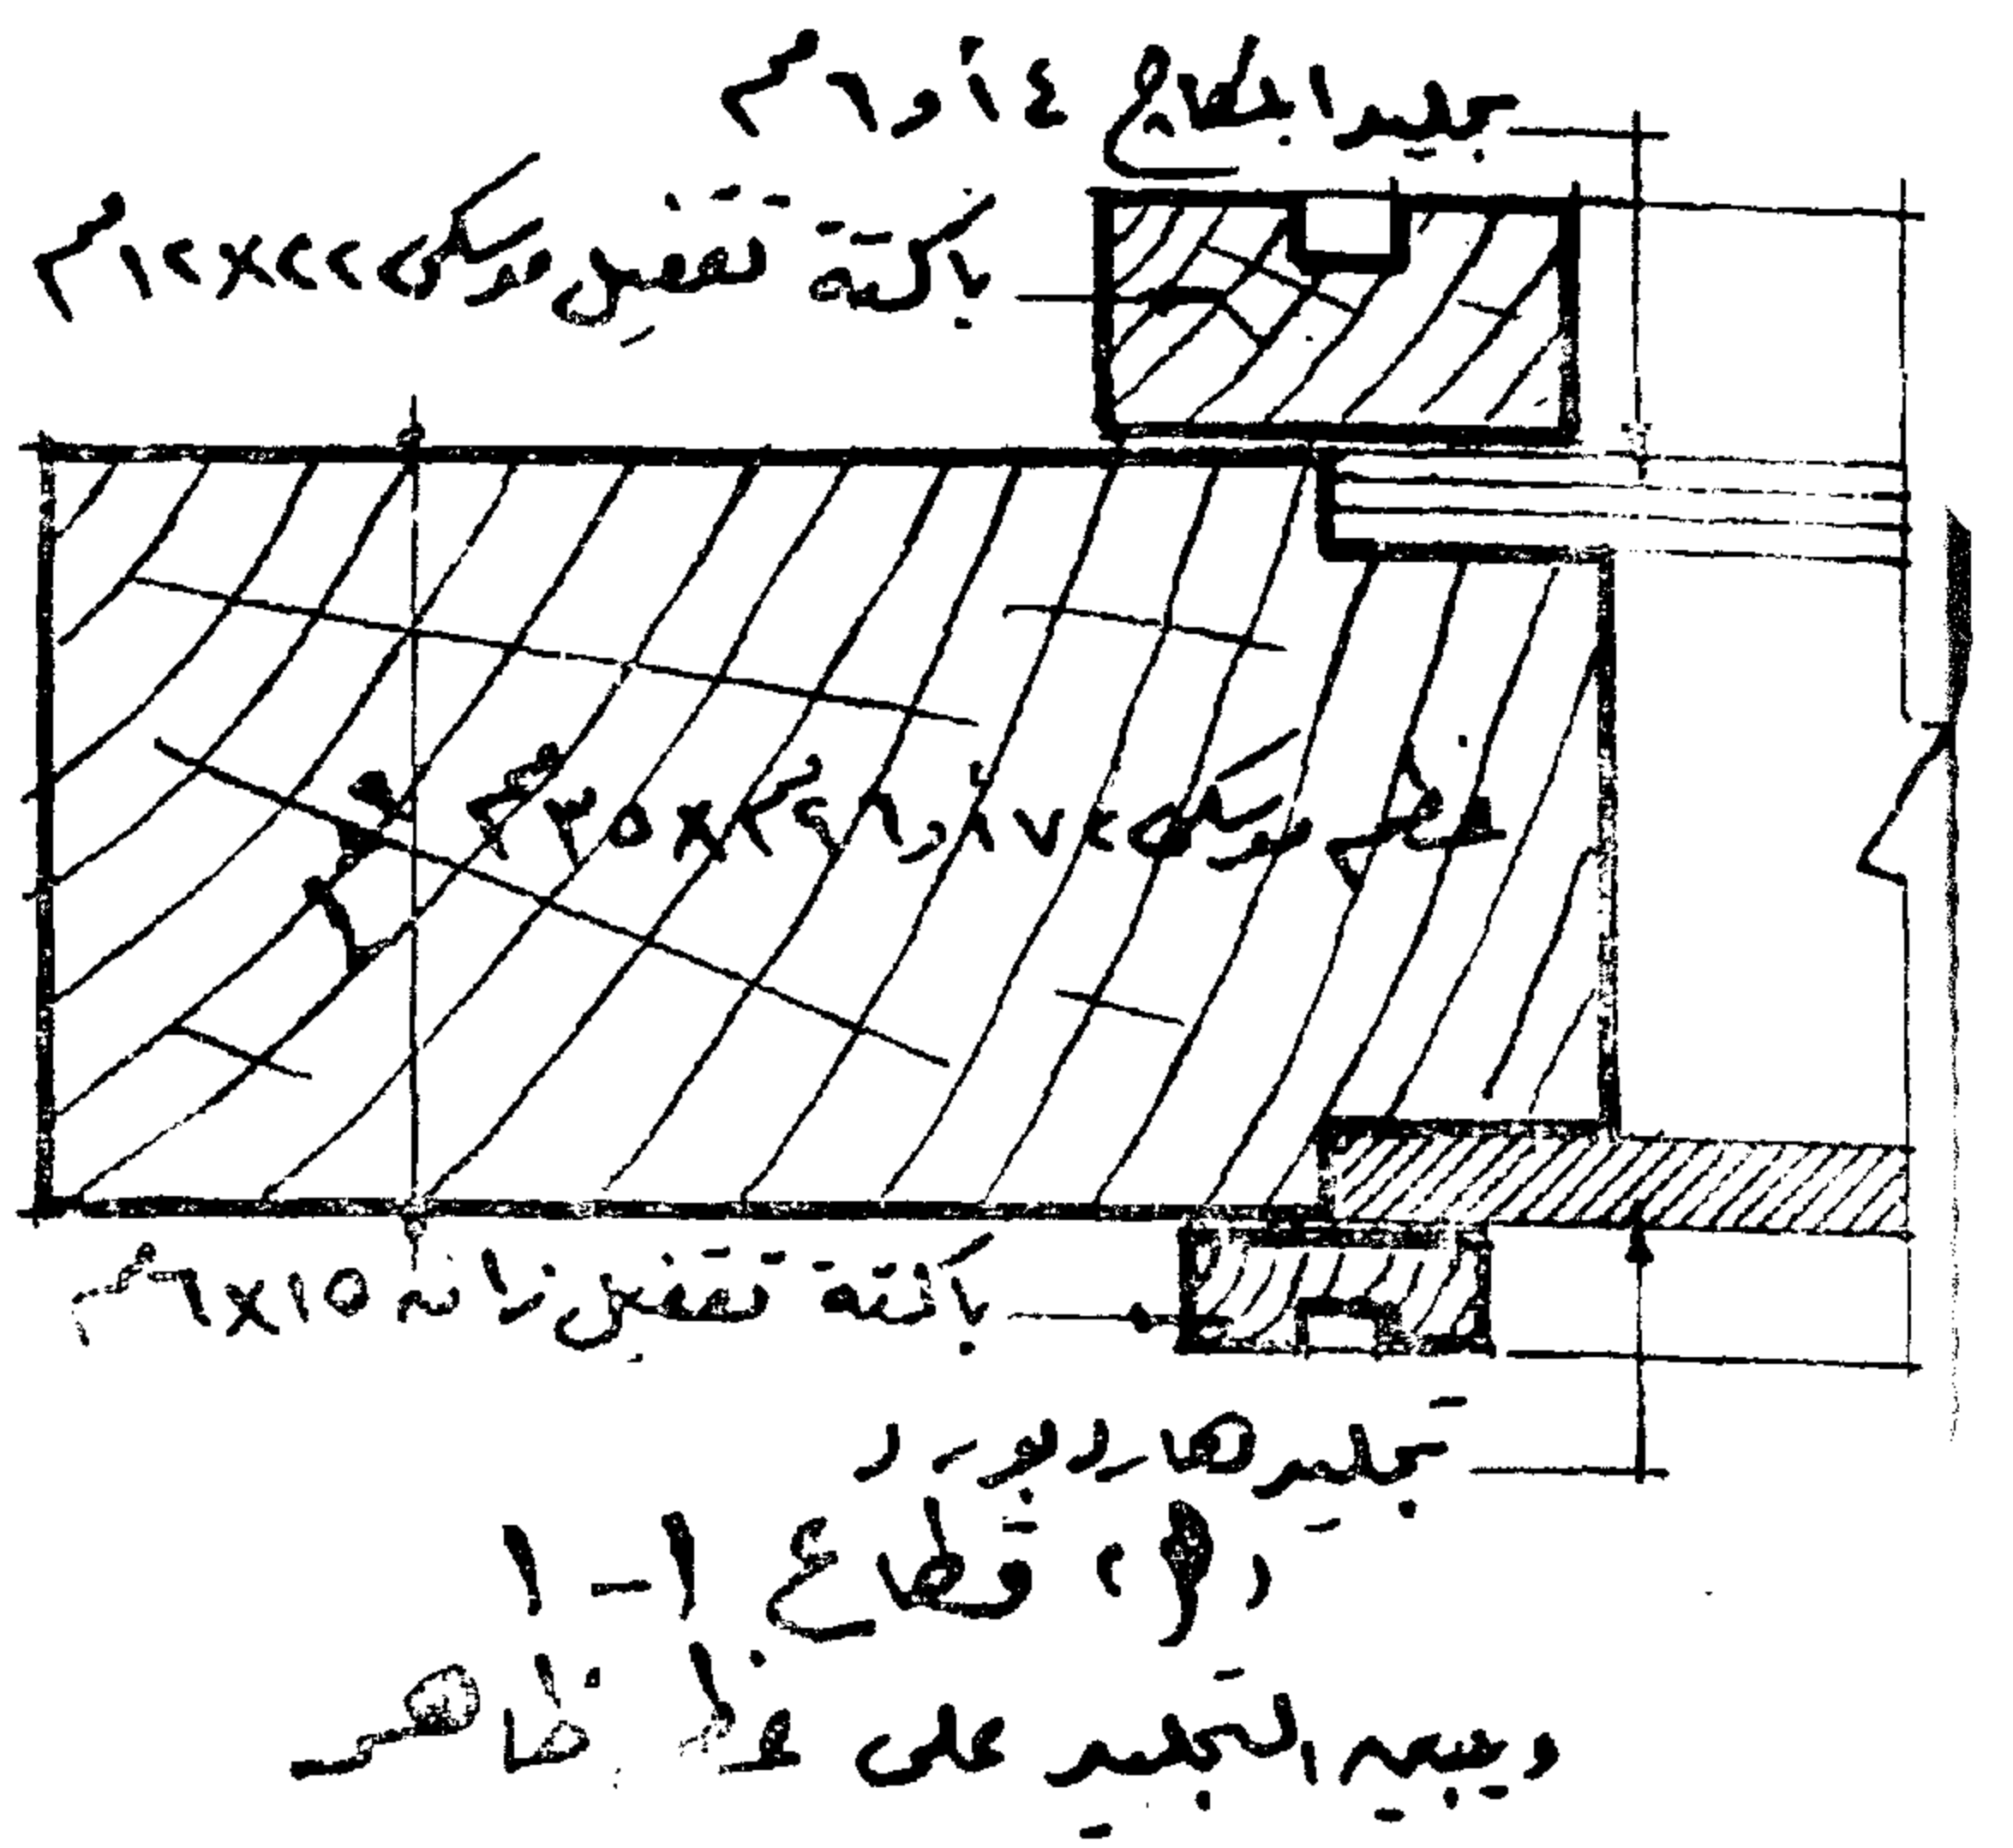 تجليد ابلكاج ٤ أو ٦ مم
باكتة تقفيل موسكى ٢٢×١٢ مم
عظم موسكى ٧٤ أو ٩٨ مم × ٣٥ مم
باكتة تقفيل زانه ١٥×٦ مم
تجليد هاردبورد
قطاع ١-١
ويبين التجليد على عظم ظاهر